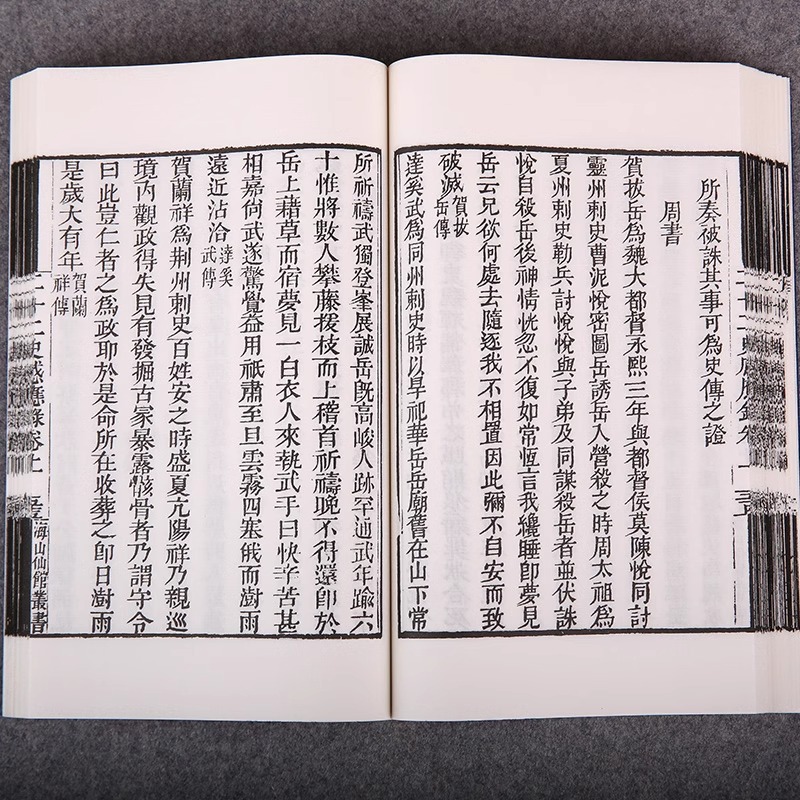 所奏被誅其事可為史傳之證
周書
賀拔岳為魏大都督永熙三年與都督侯莫陳悅同討
靈州刺史曹泥悅密圖岳誘岳入營殺之時周太祖為
夏州刺史勒兵討悅悅與子弟及同謀殺岳者並伏誅
悅自殺岳後神情恍忽不復如常恆言我纔睡即夢見
岳云兄欲何處去隨逐我不相置因此彌不自安而致
破滅賀拔岳傳
達奚武為同州刺史時以旱祀華岳岳廟舊在山下常
所祈禱武獨登峯展誠岳既高峻人跡罕通武年踰六
十惟將數人攀藤援枝而上稽首祈禱晚不得還即於
岳上藉草而宿夢見一白衣人來執武手曰快辛苦甚
相嘉尚武遂驚覺益用祇肅至旦雲霧四塞俄而澍雨
遠近沾洽達奚武傳
賀蘭祥為荆州刺史百姓安之時盛夏亢陽祥乃親巡
境內觀政得失見有發掘古冢暴露骸骨者乃謂守令
曰此豈仁者之為政耶於是命所在收葬之即日澍雨
是歲大有年賀蘭祥傳
二十二史感應錄卷上
海山仙館叢書